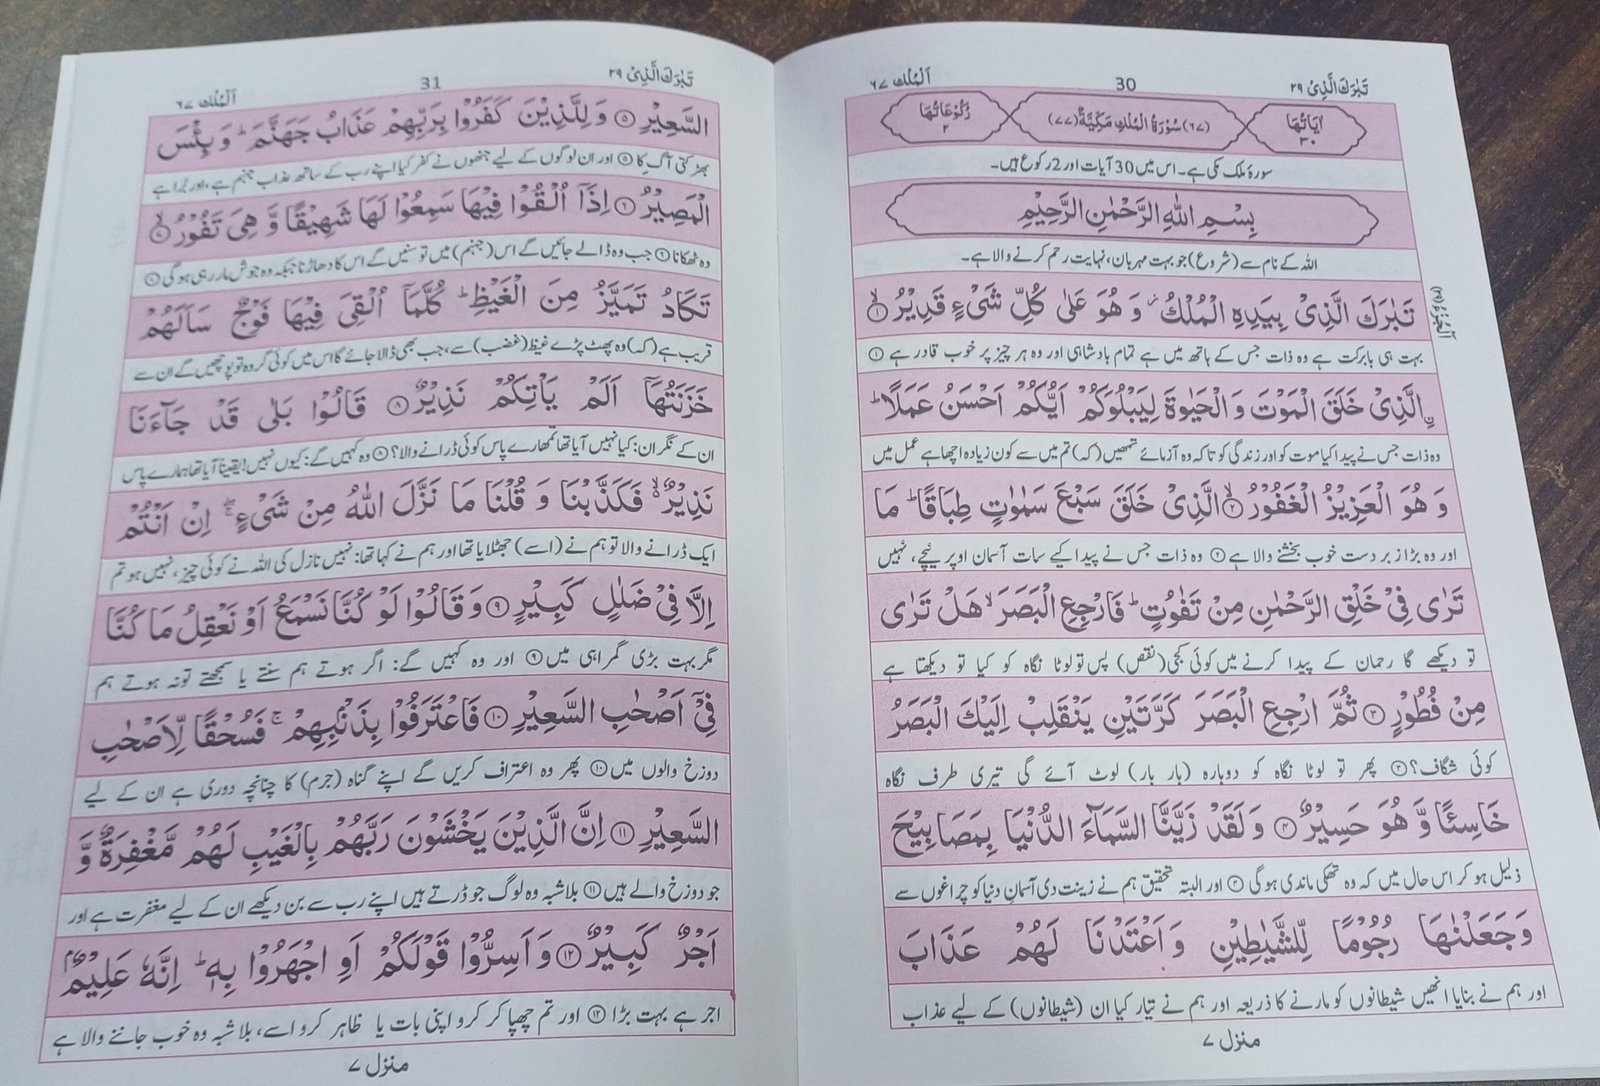 تَبٰرَكَ الَّذِیْ ۲۹
30
اَلْمُلْك ۶۷
اٰيَاتُهَا ۳۰
(۶۷) سُوْرَةُ الْمُلْكِ مَكِّيَّةٌ (۷۷)
رُكُوْعَاتُهَا ۲
سورۂ ملک مکی ہے۔ اس میں 30 آیات اور 2 رکوع ہیں۔
بِسْمِ اللّٰهِ الرَّحْمٰنِ الرَّحِيْمِ
اللہ کے نام سے (شروع) جو بہت مہربان، نہایت رحم کرنے والا ہے۔
اَلْجُزْءُ (۲۹)
تَبٰرَكَ الَّذِیْ بِيَدِهِ الْمُلْكُ ز وَ هُوَ عَلٰی كُلِّ شَیْءٍ قَدِيْرُ ۙ ۱
بہت ہی بابرکت ہے وہ ذات جس کے ہاتھ میں ہے تمام بادشاہی اور وہ ہر چیز پر خوب قادر ہے ۱
نِ الَّذِیْ خَلَقَ الْمَوْتَ وَ الْحَيٰوةَ لِيَبْلُوَكُمْ اَيُّكُمْ اَحْسَنُ عَمَلًا ؕ
وہ ذات جس نے پیدا کیا موت کو اور زندگی کو تاکہ وہ آزمائے تمھیں (کہ) تم میں سے کون زیادہ اچھا ہے عمل میں
وَ هُوَ الْعَزِيْزُ الْغَفُوْرُ ۙ ۲ الَّذِیْ خَلَقَ سَبْعَ سَمٰوٰتٍ طِبَاقًا ؕ مَا
اور وہ بڑا زبردست خوب بخشنے والا ہے ۲ وہ ذات جس نے پیدا کیے سات آسمان اوپر نیچے، نہیں
تَرٰی فِیْ خَلْقِ الرَّحْمٰنِ مِنْ تَفٰوُتٍ ؕ فَارْجِعِ الْبَصَرَ ۙ هَلْ تَرٰی
تو دیکھے گا رحمان کے پیدا کرنے میں کوئی کجی (نقص) پس تو لوٹا نگاہ کو کیا تو دیکھتا ہے
مِنْ فُطُوْرٍ ۳ ثُمَّ ارْجِعِ الْبَصَرَ كَرَّتَيْنِ يَنْقَلِبْ اِلَيْكَ الْبَصَرُ
کوئی شگاف؟ ۳ پھر تو لوٹا نگاہ کو دوبارہ (بار بار) لوٹ آئے گی تیری طرف نگاہ
خَاسِئًا وَّ هُوَ حَسِيْرٌ ۴ وَ لَقَدْ زَيَّنَّا السَّمَآءَ الدُّنْيَا بِمَصَابِيْحَ
ذلیل ہو کر اس حال میں کہ وہ تھکی ماندی ہو گی ۴ اور البتہ تحقیق ہم نے زینت دی آسمانِ دنیا کو چراغوں سے
وَ جَعَلْنٰهَا رُجُوْمًا لِّلشَّيٰطِيْنِ وَ اَعْتَدْنَا لَهُمْ عَذَابَ
اور ہم نے بنایا انھیں شیطانوں کو مارنے کا ذریعہ اور ہم نے تیار کیا ان (شیطانوں) کے لیے عذاب
منزل ۷
تَبٰرَكَ الَّذِیْ ۲۹
31
اَلْمُلْك ۶۷
السَّعِيْرِ ۵ وَ لِلَّذِيْنَ كَفَرُوْا بِرَبِّهِمْ عَذَابُ جَهَنَّمَ ؕ وَ بِئْسَ
بھڑکتی آگ کا ۵ اور ان لوگوں کے لیے جنھوں نے کفر کیا اپنے رب کے ساتھ عذاب جہنم ہے، اور بُرا ہے
الْمَصِيْرُ ۶ اِذَاۤ اُلْقُوْا فِيْهَا سَمِعُوْا لَهَا شَهِيْقًا وَّ هِیَ تَفُوْرُ ۙ ۷
وہ ٹھکانا ۶ جب وہ ڈالے جائیں گے اس (جہنم) میں تو سنیں گے اس کا دھاڑنا جبکہ وہ جوش مار رہی ہو گی ۷
تَكَادُ تَمَيَّزُ مِنَ الْغَيْظِ ؕ كُلَّمَاۤ اُلْقِیَ فِيْهَا فَوْجٌ سَاَلَهُمْ
قریب ہے (کہ) وہ پھٹ پڑے غیظ (غضب) سے، جب بھی ڈالا جائے گا اس میں کوئی گروہ تو پوچھیں گے ان سے
خَزَنَتُهَاۤ اَلَمْ يَاْتِكُمْ نَذِيْرٌ ۸ قَالُوْا بَلٰی قَدْ جَآءَنَا
ان کے نگران: کیا نہیں آیا تھا تمھارے پاس کوئی ڈرانے والا؟ ۸ وہ کہیں گے: کیوں نہیں! یقیناً آیا تھا ہمارے پاس
نَذِيْرٌ ۙ فَكَذَّبْنَا وَ قُلْنَا مَا نَزَّلَ اللّٰهُ مِنْ شَیْءٍ ۚ اِنْ اَنْتُمْ
ایک ڈرانے والا تو ہم نے (اسے) جھٹلایا تھا اور ہم نے کہا تھا: نہیں نازل کی اللہ نے کوئی چیز، نہیں ہو تم
اِلَّا فِیْ ضَلٰلٍ كَبِيْرٍ ۹ وَ قَالُوْا لَوْ كُنَّا نَسْمَعُ اَوْ نَعْقِلُ مَا كُنَّا
مگر بہت بڑی گمراہی میں ۹ اور وہ کہیں گے: اگر ہوتے ہم سنتے یا سمجھتے تو نہ ہوتے ہم
فِیْۤ اَصْحٰبِ السَّعِيْرِ ۱۰ فَاعْتَرَفُوْا بِذَنْۢبِهِمْ ۚ فَسُحْقًا لِّاَصْحٰبِ
دوزخ والوں میں ۱۰ پھر وہ اعتراف کریں گے اپنے گناہ (جرم) کا چنانچہ دوری ہے ان کے لیے
السَّعِيْرِ ۱۱ اِنَّ الَّذِيْنَ يَخْشَوْنَ رَبَّهُمْ بِالْغَيْبِ لَهُمْ مَّغْفِرَةٌ وَّ
جو دوزخ والے ہیں ۱۱ بلاشبہ وہ لوگ جو ڈرتے ہیں اپنے رب سے بن دیکھے ان کے لیے مغفرت ہے اور
اَجْرٌ كَبِيْرٌ ۱۲ وَ اَسِرُّوْا قَوْلَكُمْ اَوِ اجْهَرُوْا بِهٖ ؕ اِنَّهٗ عَلِيْمٌۢ
اجر ہے بہت بڑا ۱۲ اور تم چھپا کر کرو اپنی بات یا ظاہر کرو اسے، بلاشبہ وہ خوب جاننے والا ہے
منزل ۷